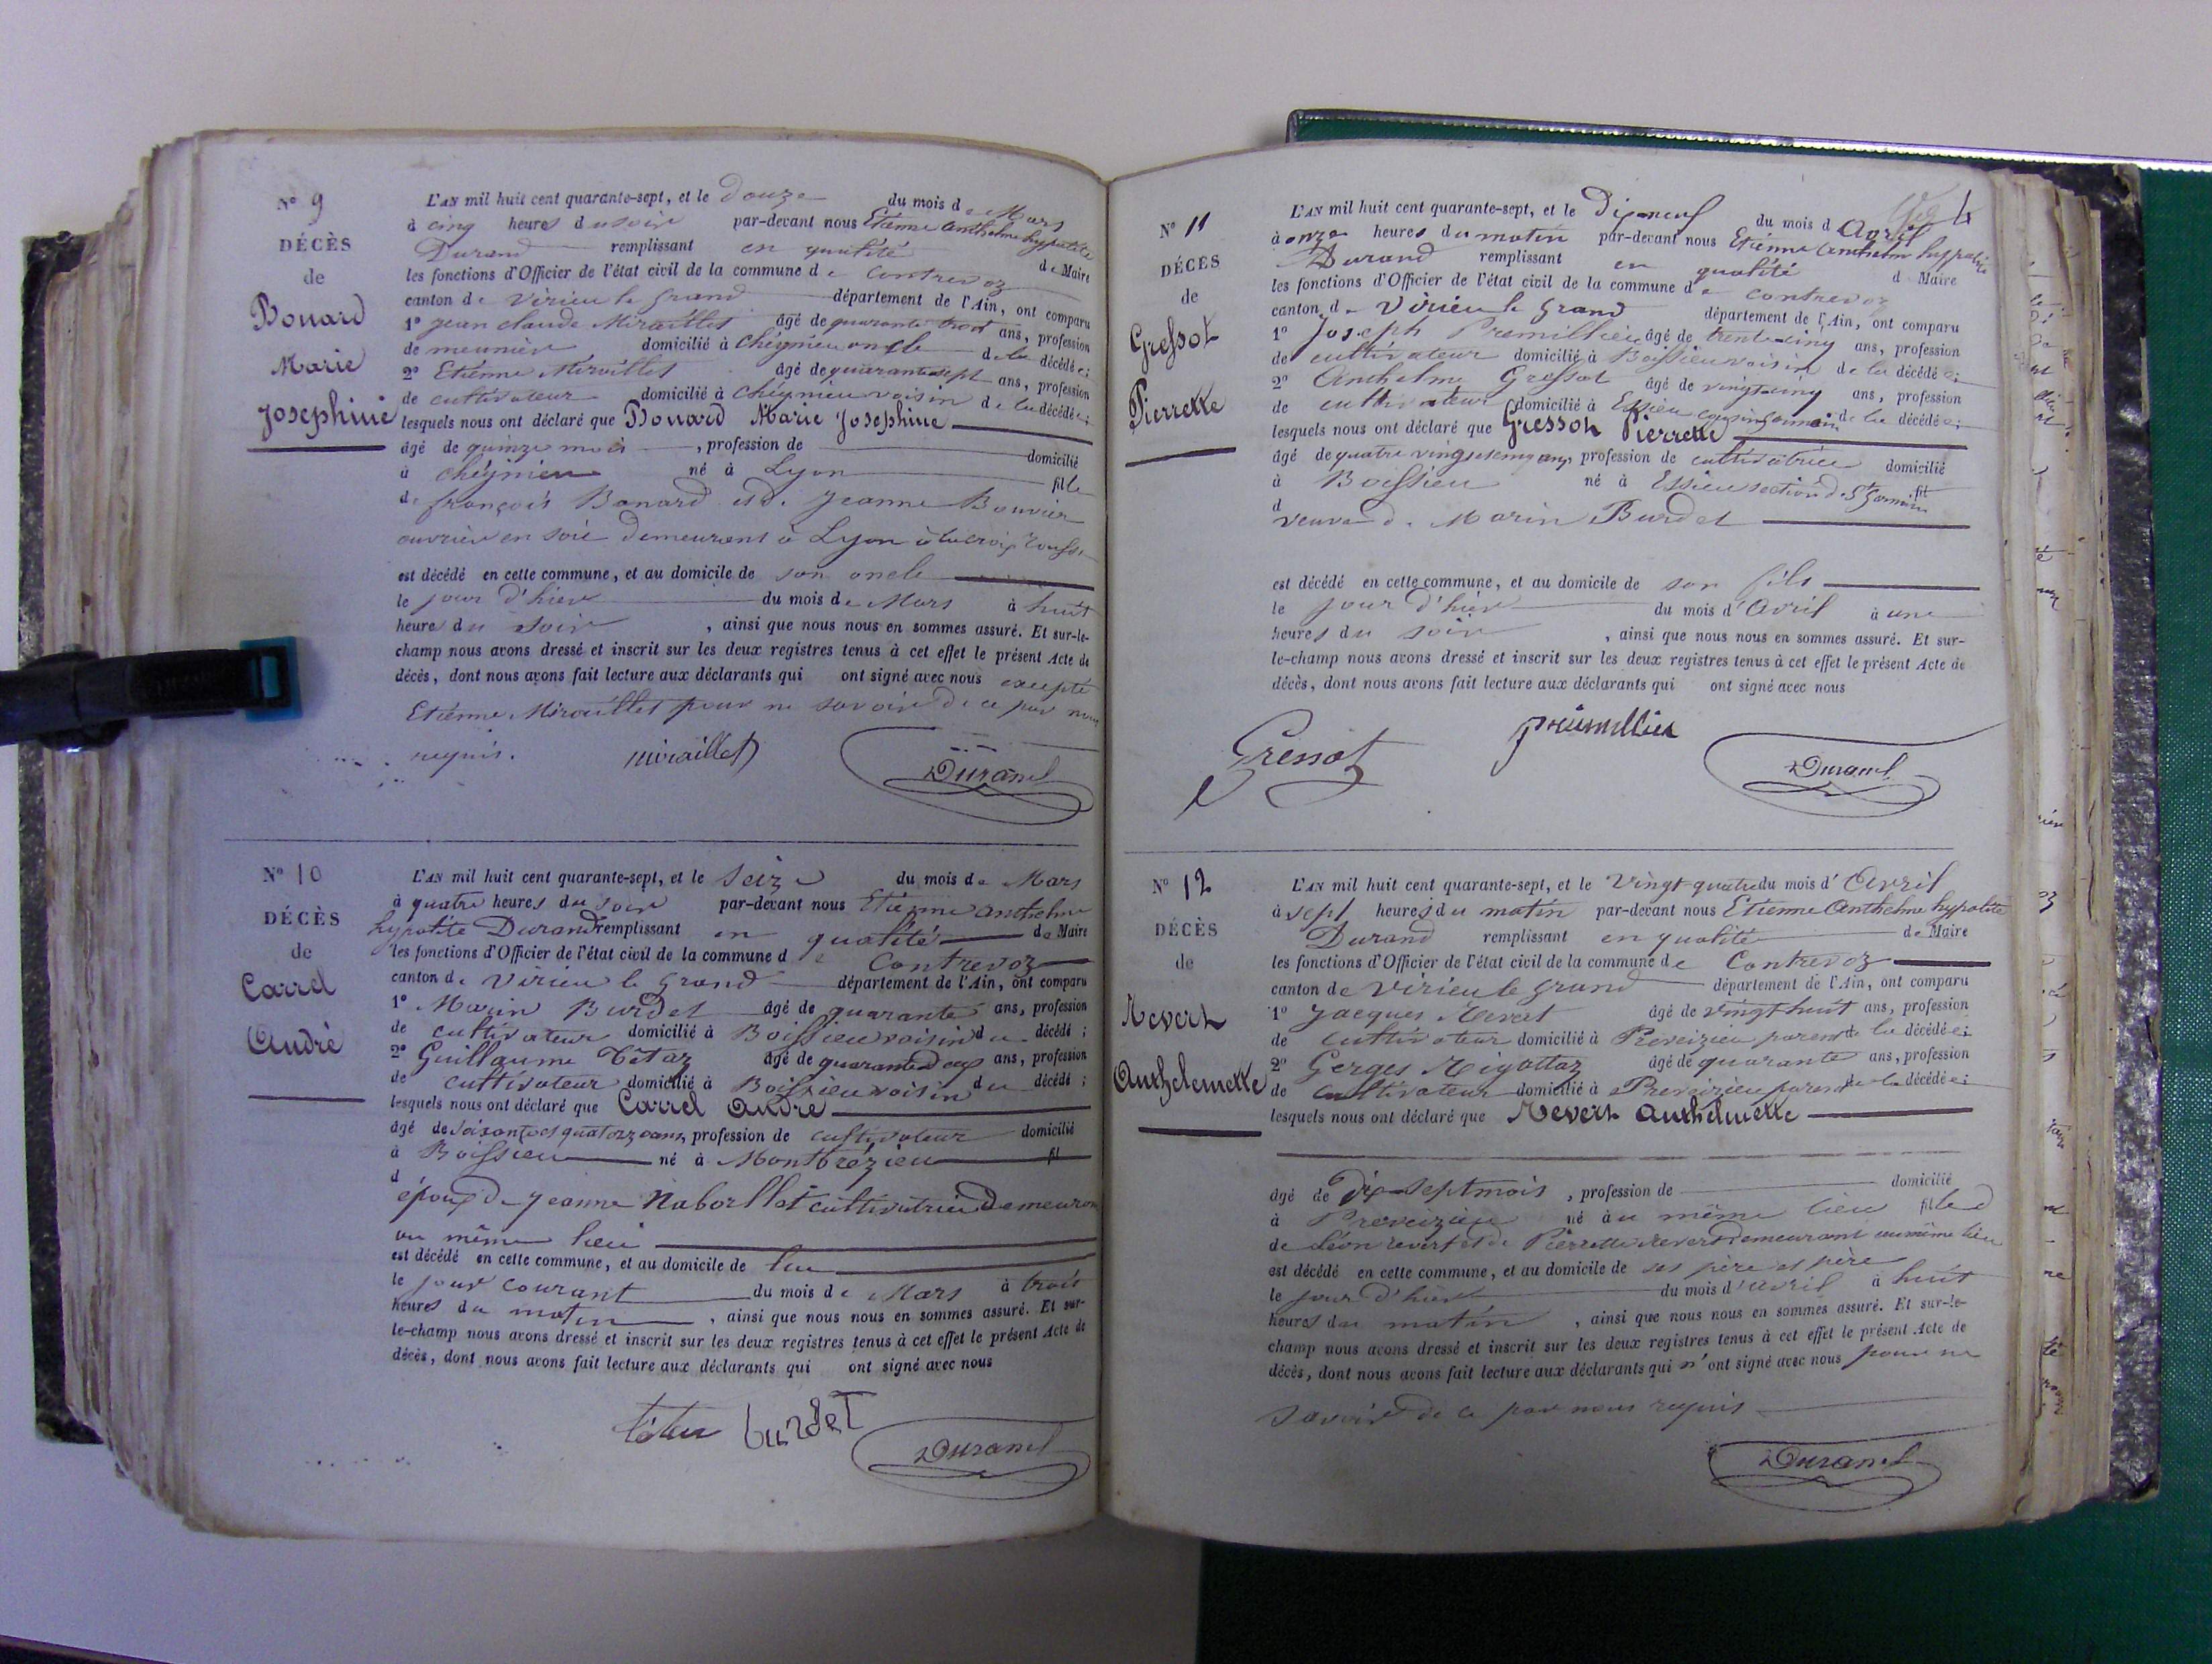 Nº 9
DÉCÈS
de
Bonard
Marie
Josephine
L'AN mil huit cent quarante-sept, et le douze du mois de Mars
à cinq heures du soir par-devant nous Etienne anthelme hypolite
Durand remplissant en qualité de Maire
les fonctions d'Officier de l'état civil de la commune de Contrevoz
canton de Virieu le grand département de l'Ain, ont comparu
1º jean claude Miraillet âgé de quarante trois ans, profession
de meunier domicilié à Cheignieu oncle de la décédée;
2º Etienne Miraillet âgé de quarante sept ans, profession
de cultivateur domicilié à cheignieu voisin de la décédée;
lesquels nous ont déclaré que Bonard Marie Josephine
âgé de quinze mois, profession de domicilié
à cheignieu né à Lyon fille
de françois Bonard et de Jeanne Bouvier
ouvrier en soie demeurant à Lyon à la croix rousse
est décédé en cette commune, et au domicile de son oncle
le jour d'hier du mois de Mars à huit
heures du soir, ainsi que nous nous en sommes assuré. Et sur-le-
champ nous avons dressé et inscrit sur les deux registres tenus à cet effet le présent Acte de
décès, dont nous avons fait lecture aux déclarants qui ont signé avec nous excepté
Etienne Miraillet pour ne savoir de ce par nous
requis. miraillet Durand
Nº 10
DÉCÈS
de
Carrel
André
L'AN mil huit cent quarante-sept, et le seize du mois de Mars
à quatre heures du soir par-devant nous Etienne anthelme
hypolite Durand remplissant en qualité de Maire
les fonctions d'Officier de l'état civil de la commune de Contrevoz
canton de Virieu le grand département de l'Ain, ont comparu
1º Marin Burdet âgé de quarante ans, profession
de cultivateur domicilié à Boissieu voisin du décédé;
2º Guillaume Tétaz âgé de quarante deux ans, profession
de cultivateur domicilié à Boissieu voisin du décédé;
lesquels nous ont déclaré que Carrel André
âgé de soixante et quatorze ans, profession de cultivateur domicilié
à Boissieu né à Montbrézieu fil
d
époux de jeanne Naborllat cultivatrice demeurant
au même lieu
est décédé en cette commune, et au domicile de lui
le jour courant du mois de Mars à trois
heures du matin, ainsi que nous nous en sommes assuré. Et sur-
le-champ nous avons dressé et inscrit sur les deux registres tenus à cet effet le présent Acte de
décès, dont nous avons fait lecture aux déclarants qui ont signé avec nous
burdet
Durand
4
Nº 11
DÉCÈS
de
Gressot
Pierrette
L'AN mil huit cent quarante-sept, et le Dix neuf du mois d'Avril
à onze heures du matin par-devant nous Etienne anthelme hyppolite
Durand remplissant en qualité d Maire
les fonctions d'Officier de l'état civil de la commune de contrevoz
canton de Virieu le Grand département de l'Ain, ont comparu
1º Joseph Premillieu âgé de trente cinq ans, profession
de cultivateur domicilié à Boissieu voisin de la décédée;
2º Anthelme Gressot âgé de vingt cinq ans, profession
de cultivateur domicilié à Essieu cousin germain de la décédée;
lesquels nous ont déclaré que Gressot Pierrette
âgé de quatre vingt cinq ans, profession de cultivatrice domicilié
à Boissieu né à Essieu section de St Germain fil
d
veuve de Marin Burdet
est décédé en cette commune, et au domicile de son fils
le jour d'hier du mois d'Avril à une
heures du soir, ainsi que nous nous en sommes assuré. Et sur-
le-champ nous avons dressé et inscrit sur les deux registres tenus à cet effet le présent Acte de
décès, dont nous avons fait lecture aux déclarants qui ont signé avec nous
Gressot premillieu
Durand
Nº 12
DÉCÈS
de
Revert
Anthelemette
L'AN mil huit cent quarante-sept, et le vingt-quatre du mois d'Avril
à sept heures du matin par-devant nous Etienne Anthelme hypolite
Durand remplissant en qualité de Maire
les fonctions d'Officier de l'état civil de la commune de Contrevoz
canton de Virieu le grand département de l'Ain, ont comparu
1º Jacques Revert âgé de vingt huit ans, profession
de cultivateur domicilié à Preveizieu parent de la décédée;
2º Gerges Rigottaz âgé de quarante ans, profession
de cultivateur domicilié à Preveizieu parent de la décédée;
lesquels nous ont déclaré que Revert anthelmette
âgé de Dix-sept mois, profession de domicilié
à Preveizieu né au même lieu fille d
de Léon revert et de Pierrette revert demeurant au même lieu
est décédé en cette commune, et au domicile de ses père et père
le jour d'hier du mois d'avril à huit
heures du matin, ainsi que nous nous en sommes assuré. Et sur-le-
champ nous avons dressé et inscrit sur les deux registres tenus à cet effet le présent Acte de
décès, dont nous avons fait lecture aux déclarants qui n'ont signé avec nous pour ne
savoir de ce par nous requis
Durand